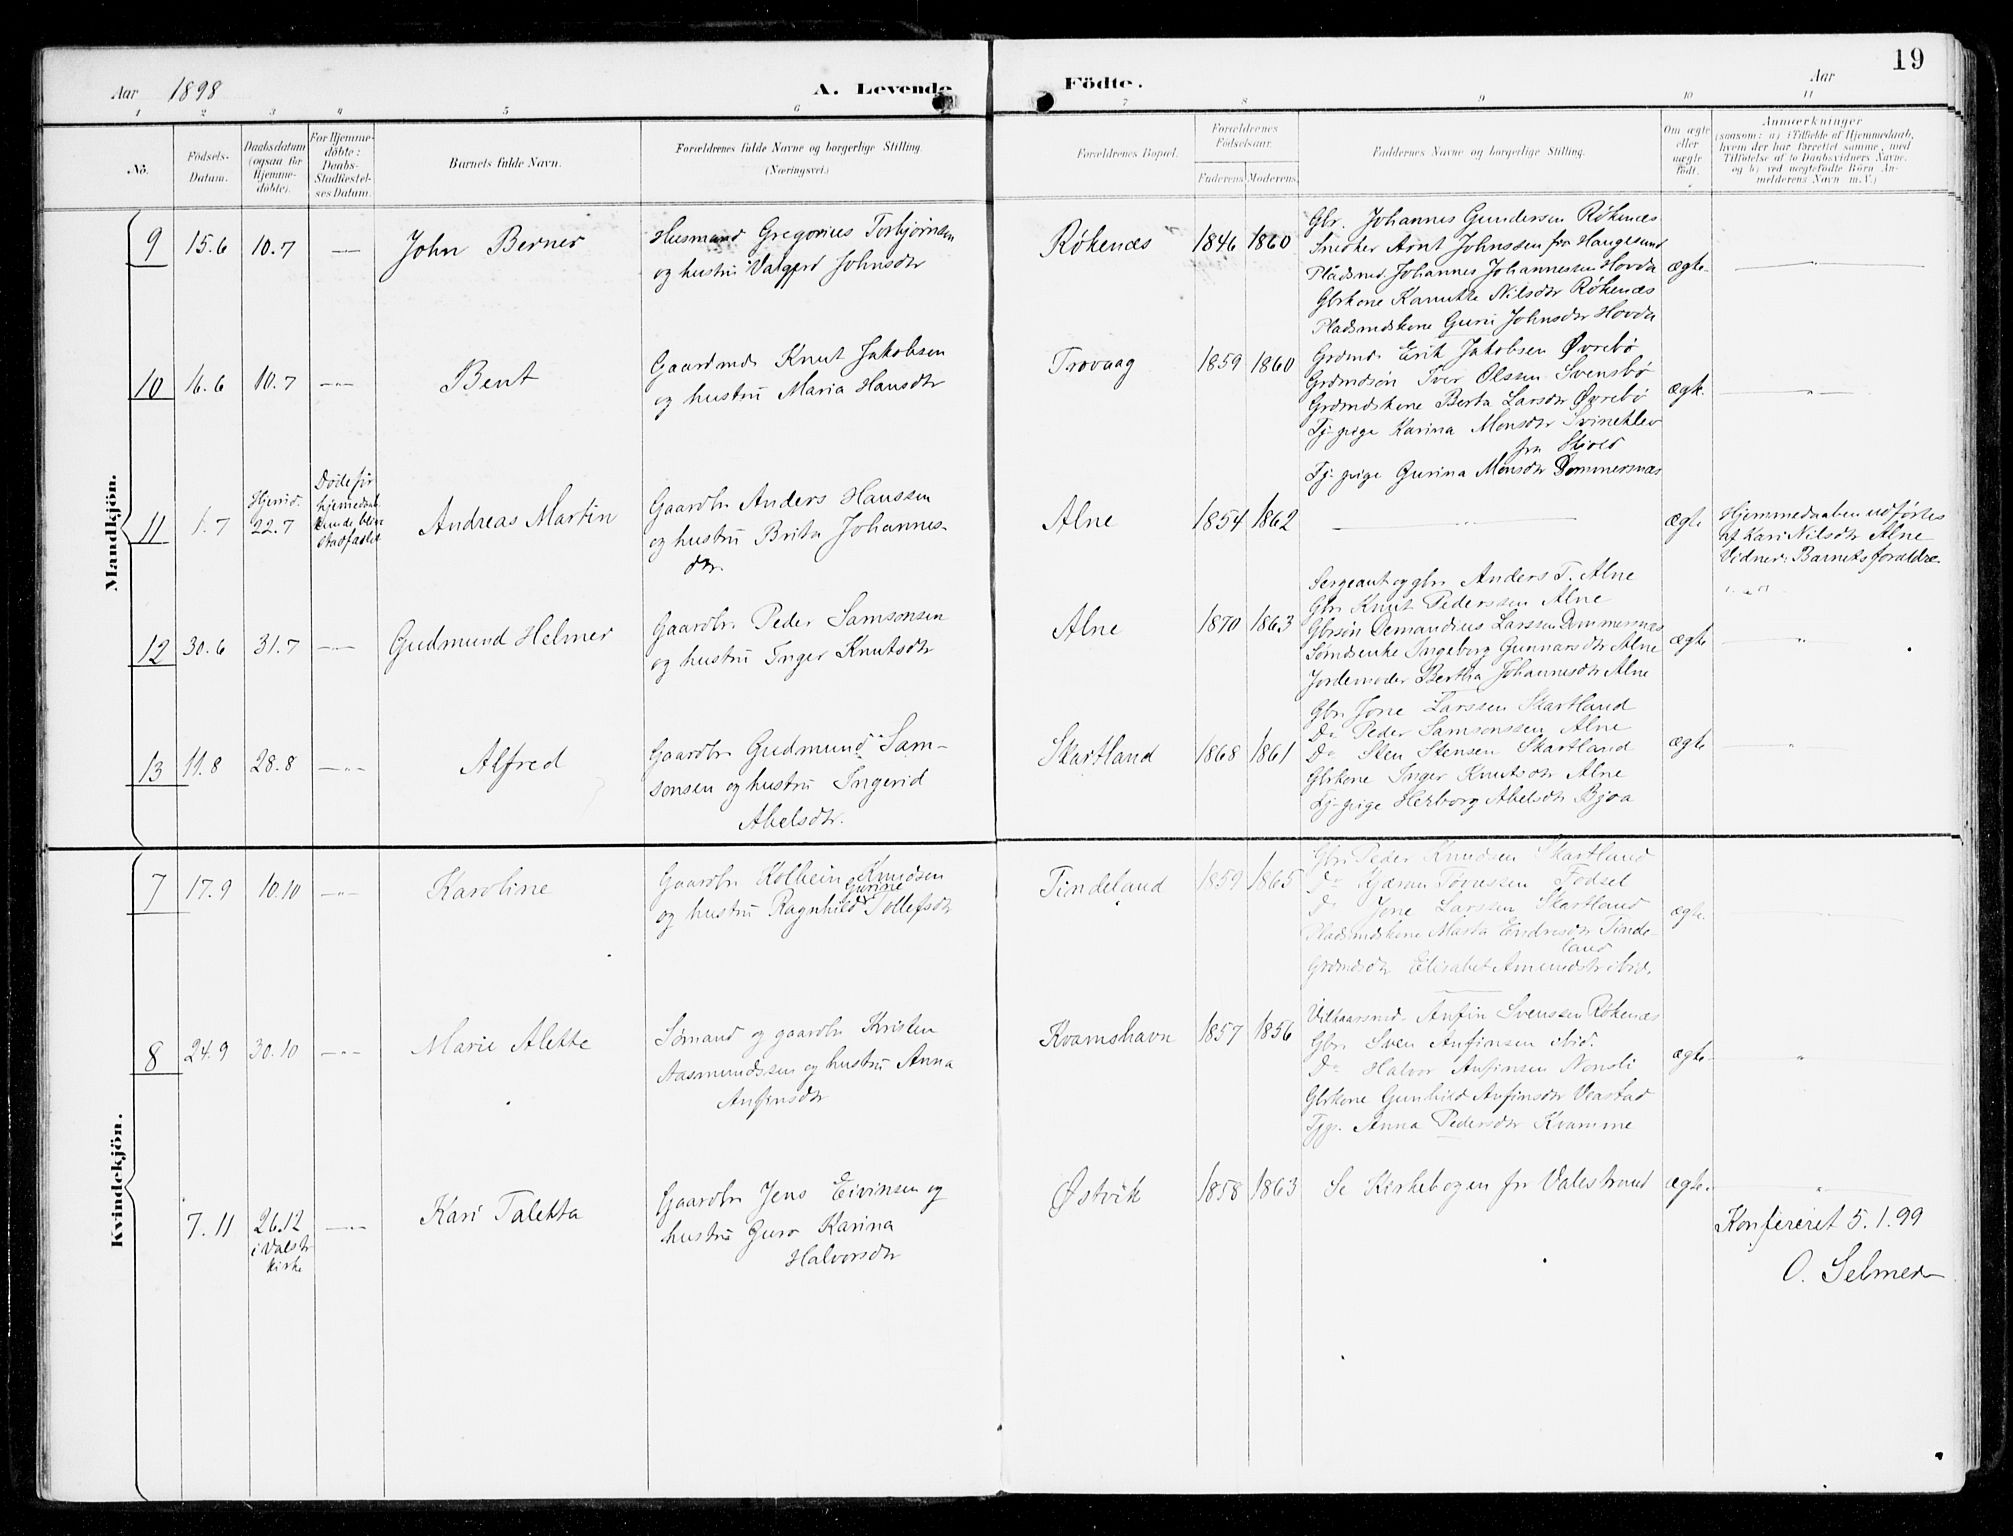 19
Aar 1898 A. Levende Födte. Aar
1 2 3 4 5 6 7 8 9 10 11
No.
Födsels-Datum.
Daabsdatum (ogsaa for Hjemmedöbte).
For Hjemmedöbte: Daabs-Stadfæstelses Datum.
Barnets fulde Navn.
Forældrenes fulde Navne og borgerlige Stilling. (Næringsvei.)
Forældrenes Bopæl.
Forældrenes Födselsaar.
Faderens. Moderens.
Faddernes Navne og borgerlige Stilling.
Om ægte eller uægte födt.
Anmærkninger
(saasom: a) i Tilfælde af Hjemmedaab, hvem der har forrettet samme, med Tilföielse af to Daabsvidners Navne. og b) ved uægtefödte Börn Anmelderens Navn m. V.)
Mandkjön.
9 15.6 10.7 —
John Berner
Husmand Gregorius Torbjørnsen
og hustru Valgerd Johnsdtr
Røkenæs 1846 1860
Gbr. Johannes Gundersen Røkenæs
Snedker Arnt Johnssen fra Haugesund
Pladsmd Johannes Johannessen Hovda
Gbrkone Kanutte Nilsdtr Røkenæs
Pladsmdskone Guri Johnsdtr Hovda
ægte
10 16.6 10.7 —"—
Bent
Gaardmd. Knut Jakobsen
og hustru Maria Hansdtr
Trovaag 1859 1860
Grdmd. Erik Jakobsen Øvrebø
Grdmdsøn Iver Olssen Svensbø
Grdmdskone Berta Larsdtr Øvrebø
Tj-pige Karina Monsdtr Svineklev
fra Skjold
Tj-pige Gurina Monsdtr Dommersnæs
ægte.
11 1.7 Hjemd. 22.7
Døde før
hjemedaab
kunde blive
stadfæstet
Andreas Martin
Gaardbr. Anders Hanssen
og hustru Brita Johannes-
dtr.
Alne 1854 1862
— " —
ægte
Hjemmedaaben udførtes
af Kari Nilsdtr Alne
Vidner: Barnets forældre
12 30.6 31.7 —"—
Gudmund Helmer
Gaardbr. Peder Samsonsen
og hustru Inger Knutsdtr
Alne 1870 1863
Sergeant og gbr. Anders T. Alne
Gbr. Knut Pederssen Alne
Gbrsøn Demandius Larssen Dommersnæs
Sømdsenke Ingeborg Gunnarsdtr Alne
Jordemoder Bertha Johannesdtr Alne
ægte
13 11.8 28.8 —"—
Alfred
Gaardbr. Gudmund Sam-
sonsen og hustru Ingerid
Abelsdtr.
Skartland 1868 1861
Gbr. Jone Larssen Skartland
Do Peder Samsonssen Alne
Do Sten Stensen Skartland
Gbrkone Inger Knutsdtr Alne
Tj-pige Herborg Abelsdtr Bjoa
ægte
Kvindekjön.
7 17.9 10.10 —"—
Karoline
Gaardbr. Kolbein Knudsen
Gurine
og hustru Ragnhild Tollefsdtr
Tindeland 1859 1865
Gbr. Peder Knudsen Skartland
Do Kjæran Tørressen Fodsel
Do Jone Larssen Skartland
Pladsmdskone Marta Endresdtr Tinde-
land
Grdmdsdtr Elisabet Amundsdtr ibid.
ægte.
8 24.9 30.10 —"—
Marie Alette
Sømand og gaardbr. Kristen
Aasmundssen og hustru Anna
Anfinsdtr
Kvamshavn 1857 1856
Vilkaarsmd. Anfin Svenssen Røkenæs
Gbr. Sven Anfinsen ibid.
Do Halvor Anfinsen Nonsli
Gbrkone Gunhild Anfinsdtr Veastad
Tjp. Anna Pedersdtr Kvamme
ægte
7.11 26.12
i Valestr
kirke
—"—
Kari Taletta
Gaardbr. Jens Eivinsen og
hustru Guro Karina
Halvorsdtr
Østvik 1858 1863
Se Kirkebogen for Valestrand
ægte
Konfereret 5.1.99
O. Selmer